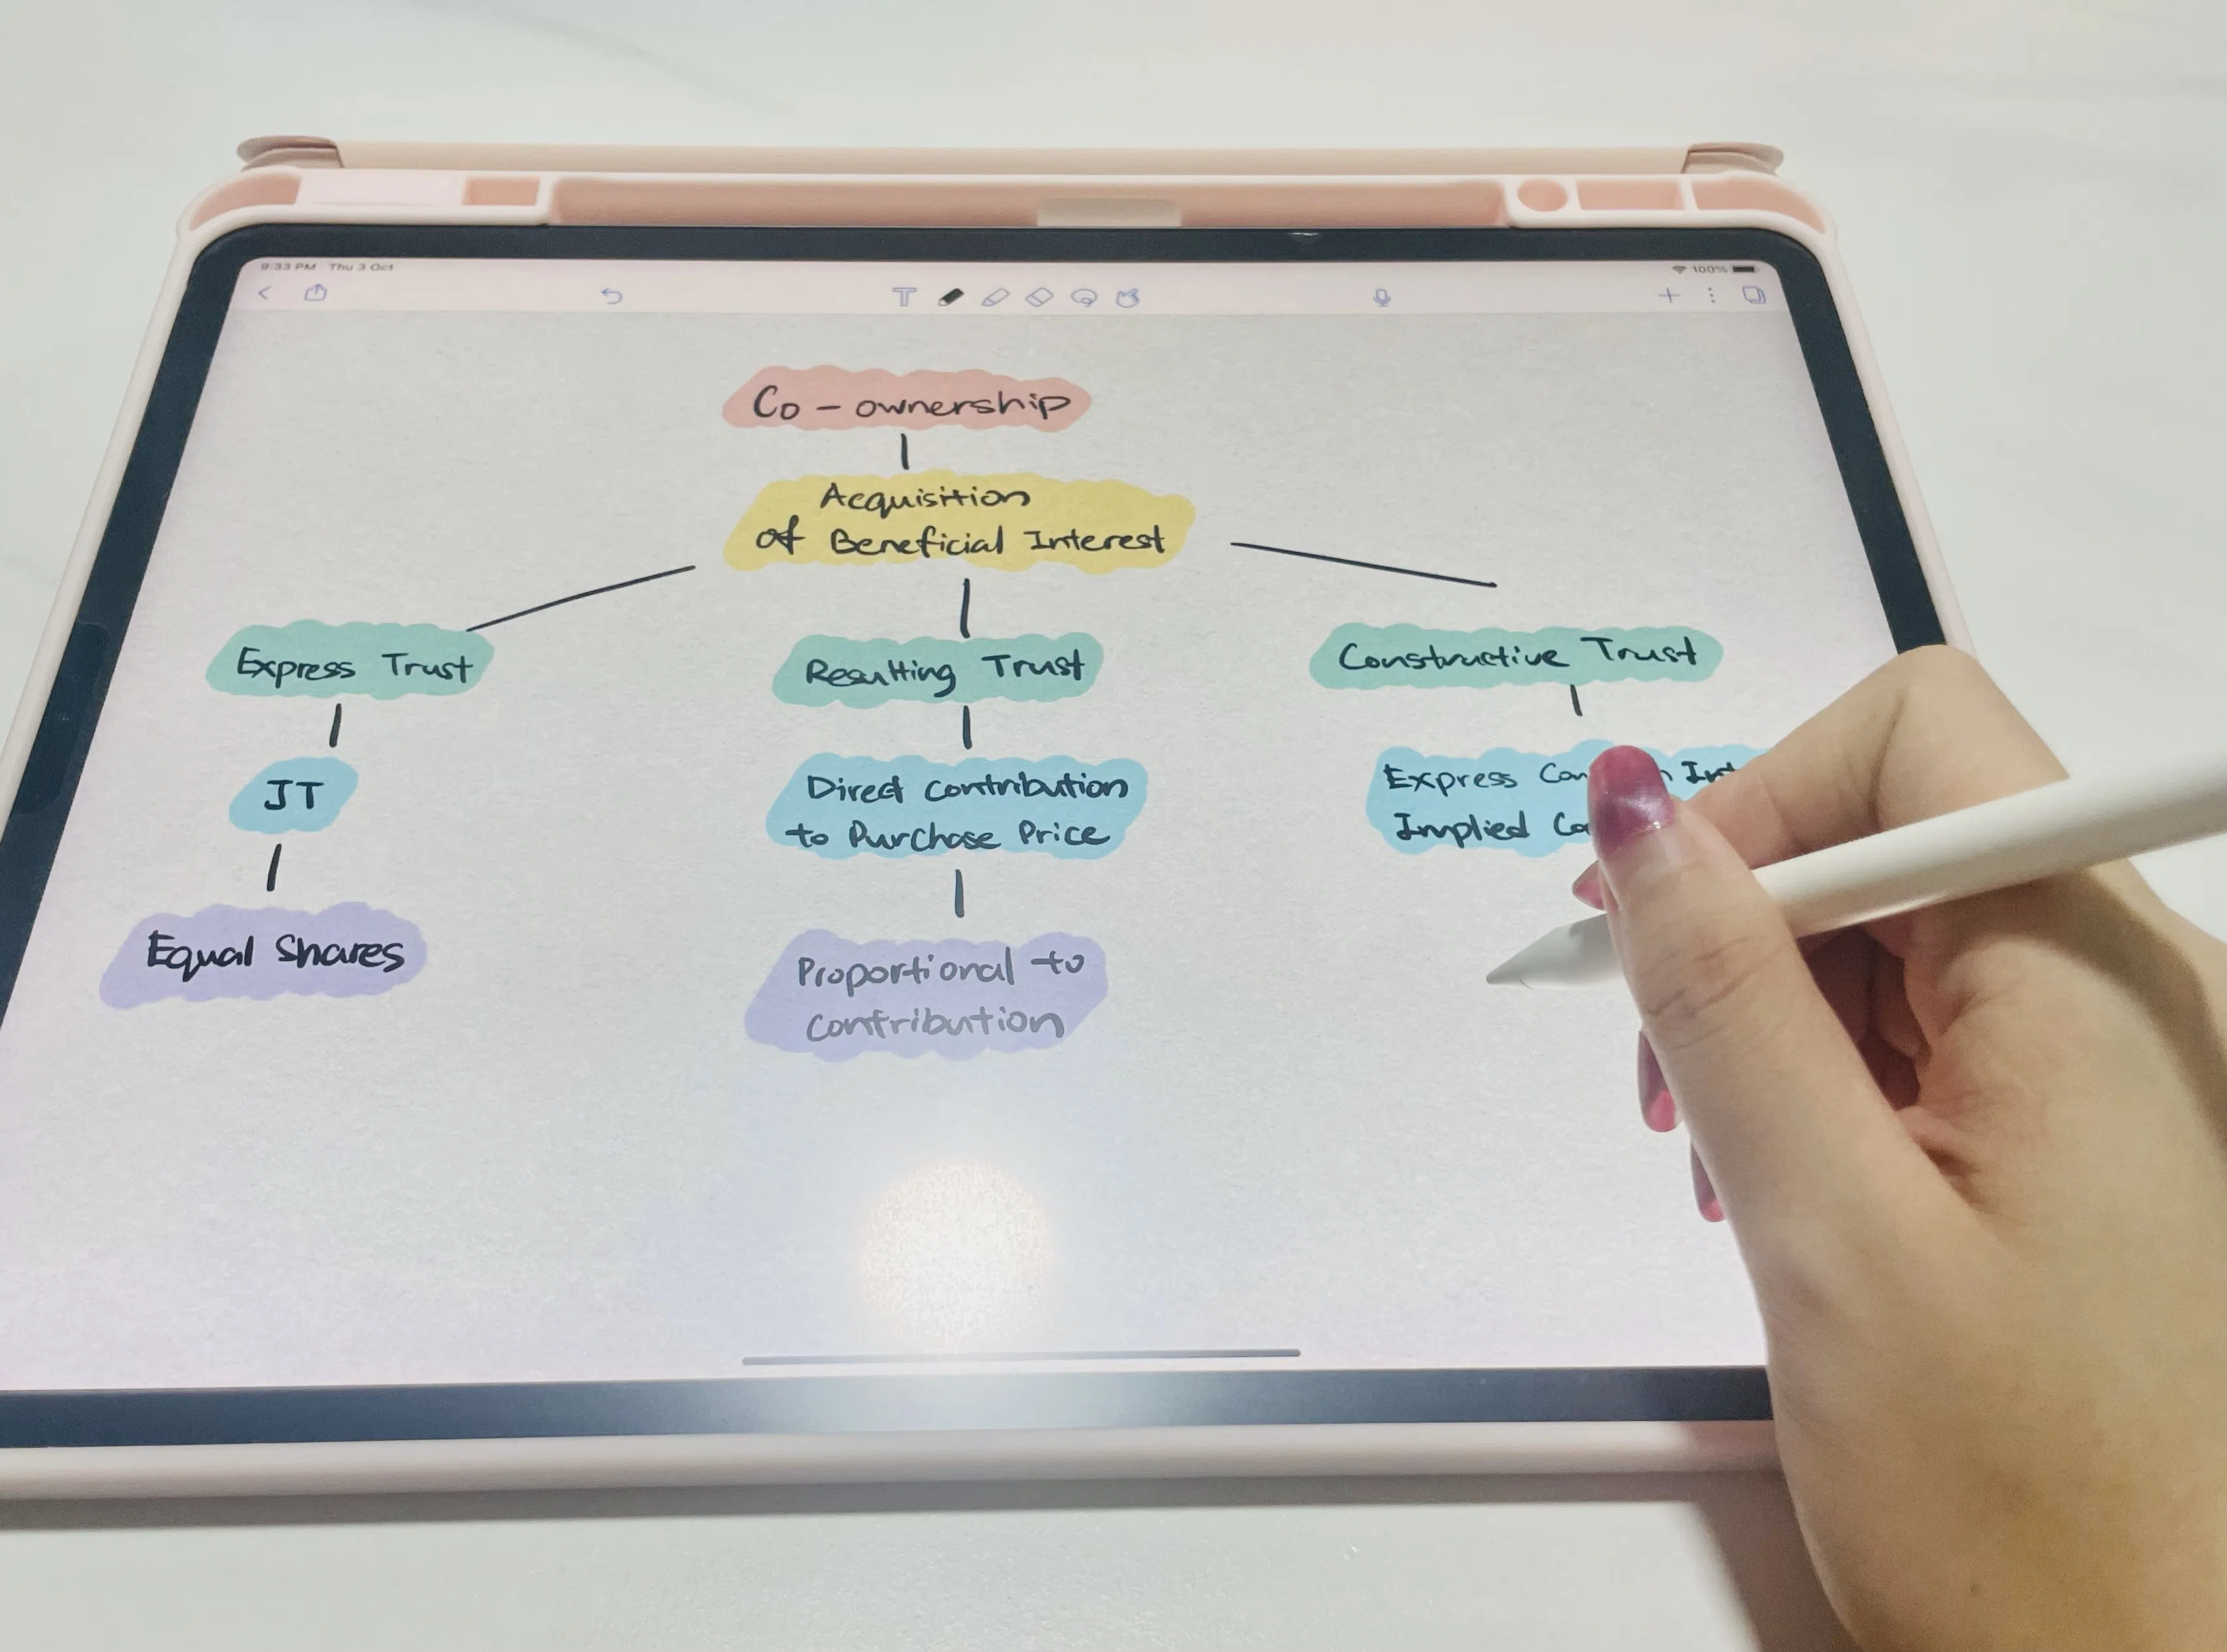 9:33 PM Thu 3 Oct
100%
Co - ownership
Acquisition
of Beneficial Interest
Express Trust
Resulting Trust
Constructive Trust
JT
Direct contribution
to Purchase Price
Express
Implied
Equal Shares
Proportional to
contribution